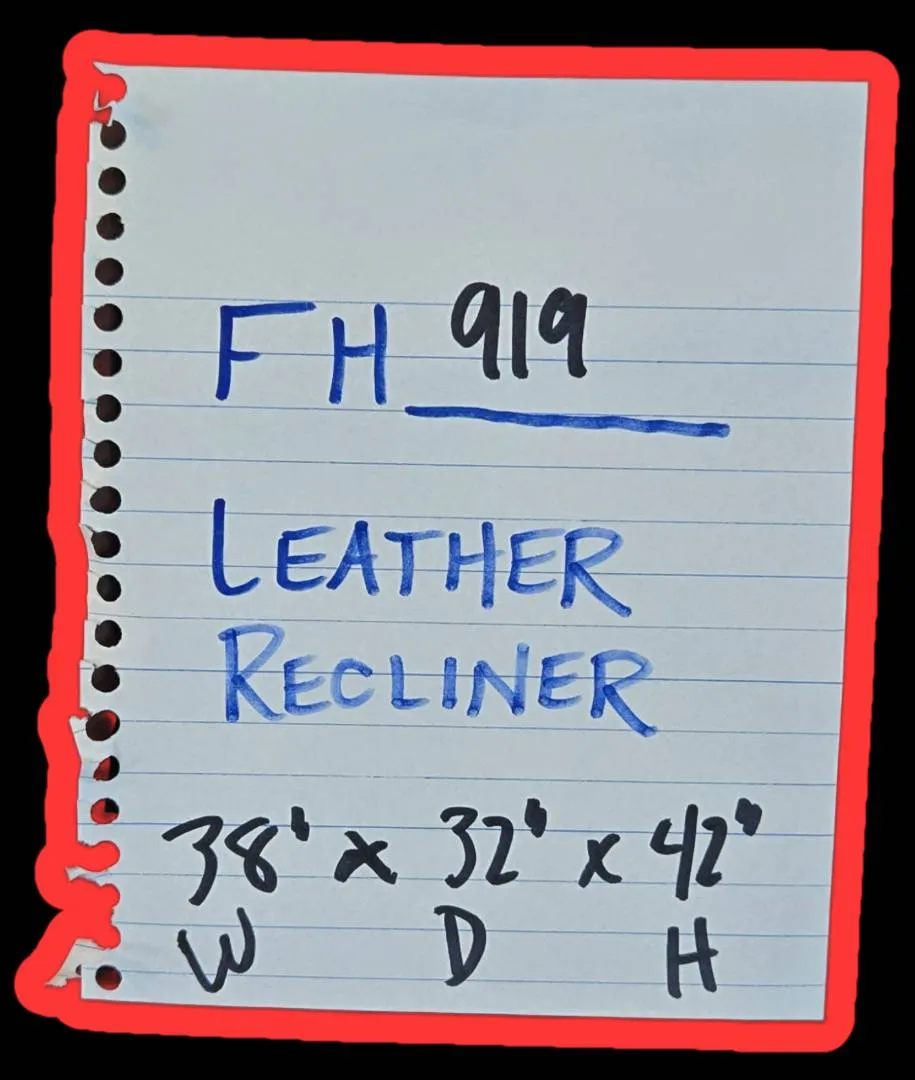 FH 919
LEATHER
RECLINER
38" x 32" x 42"
W D H